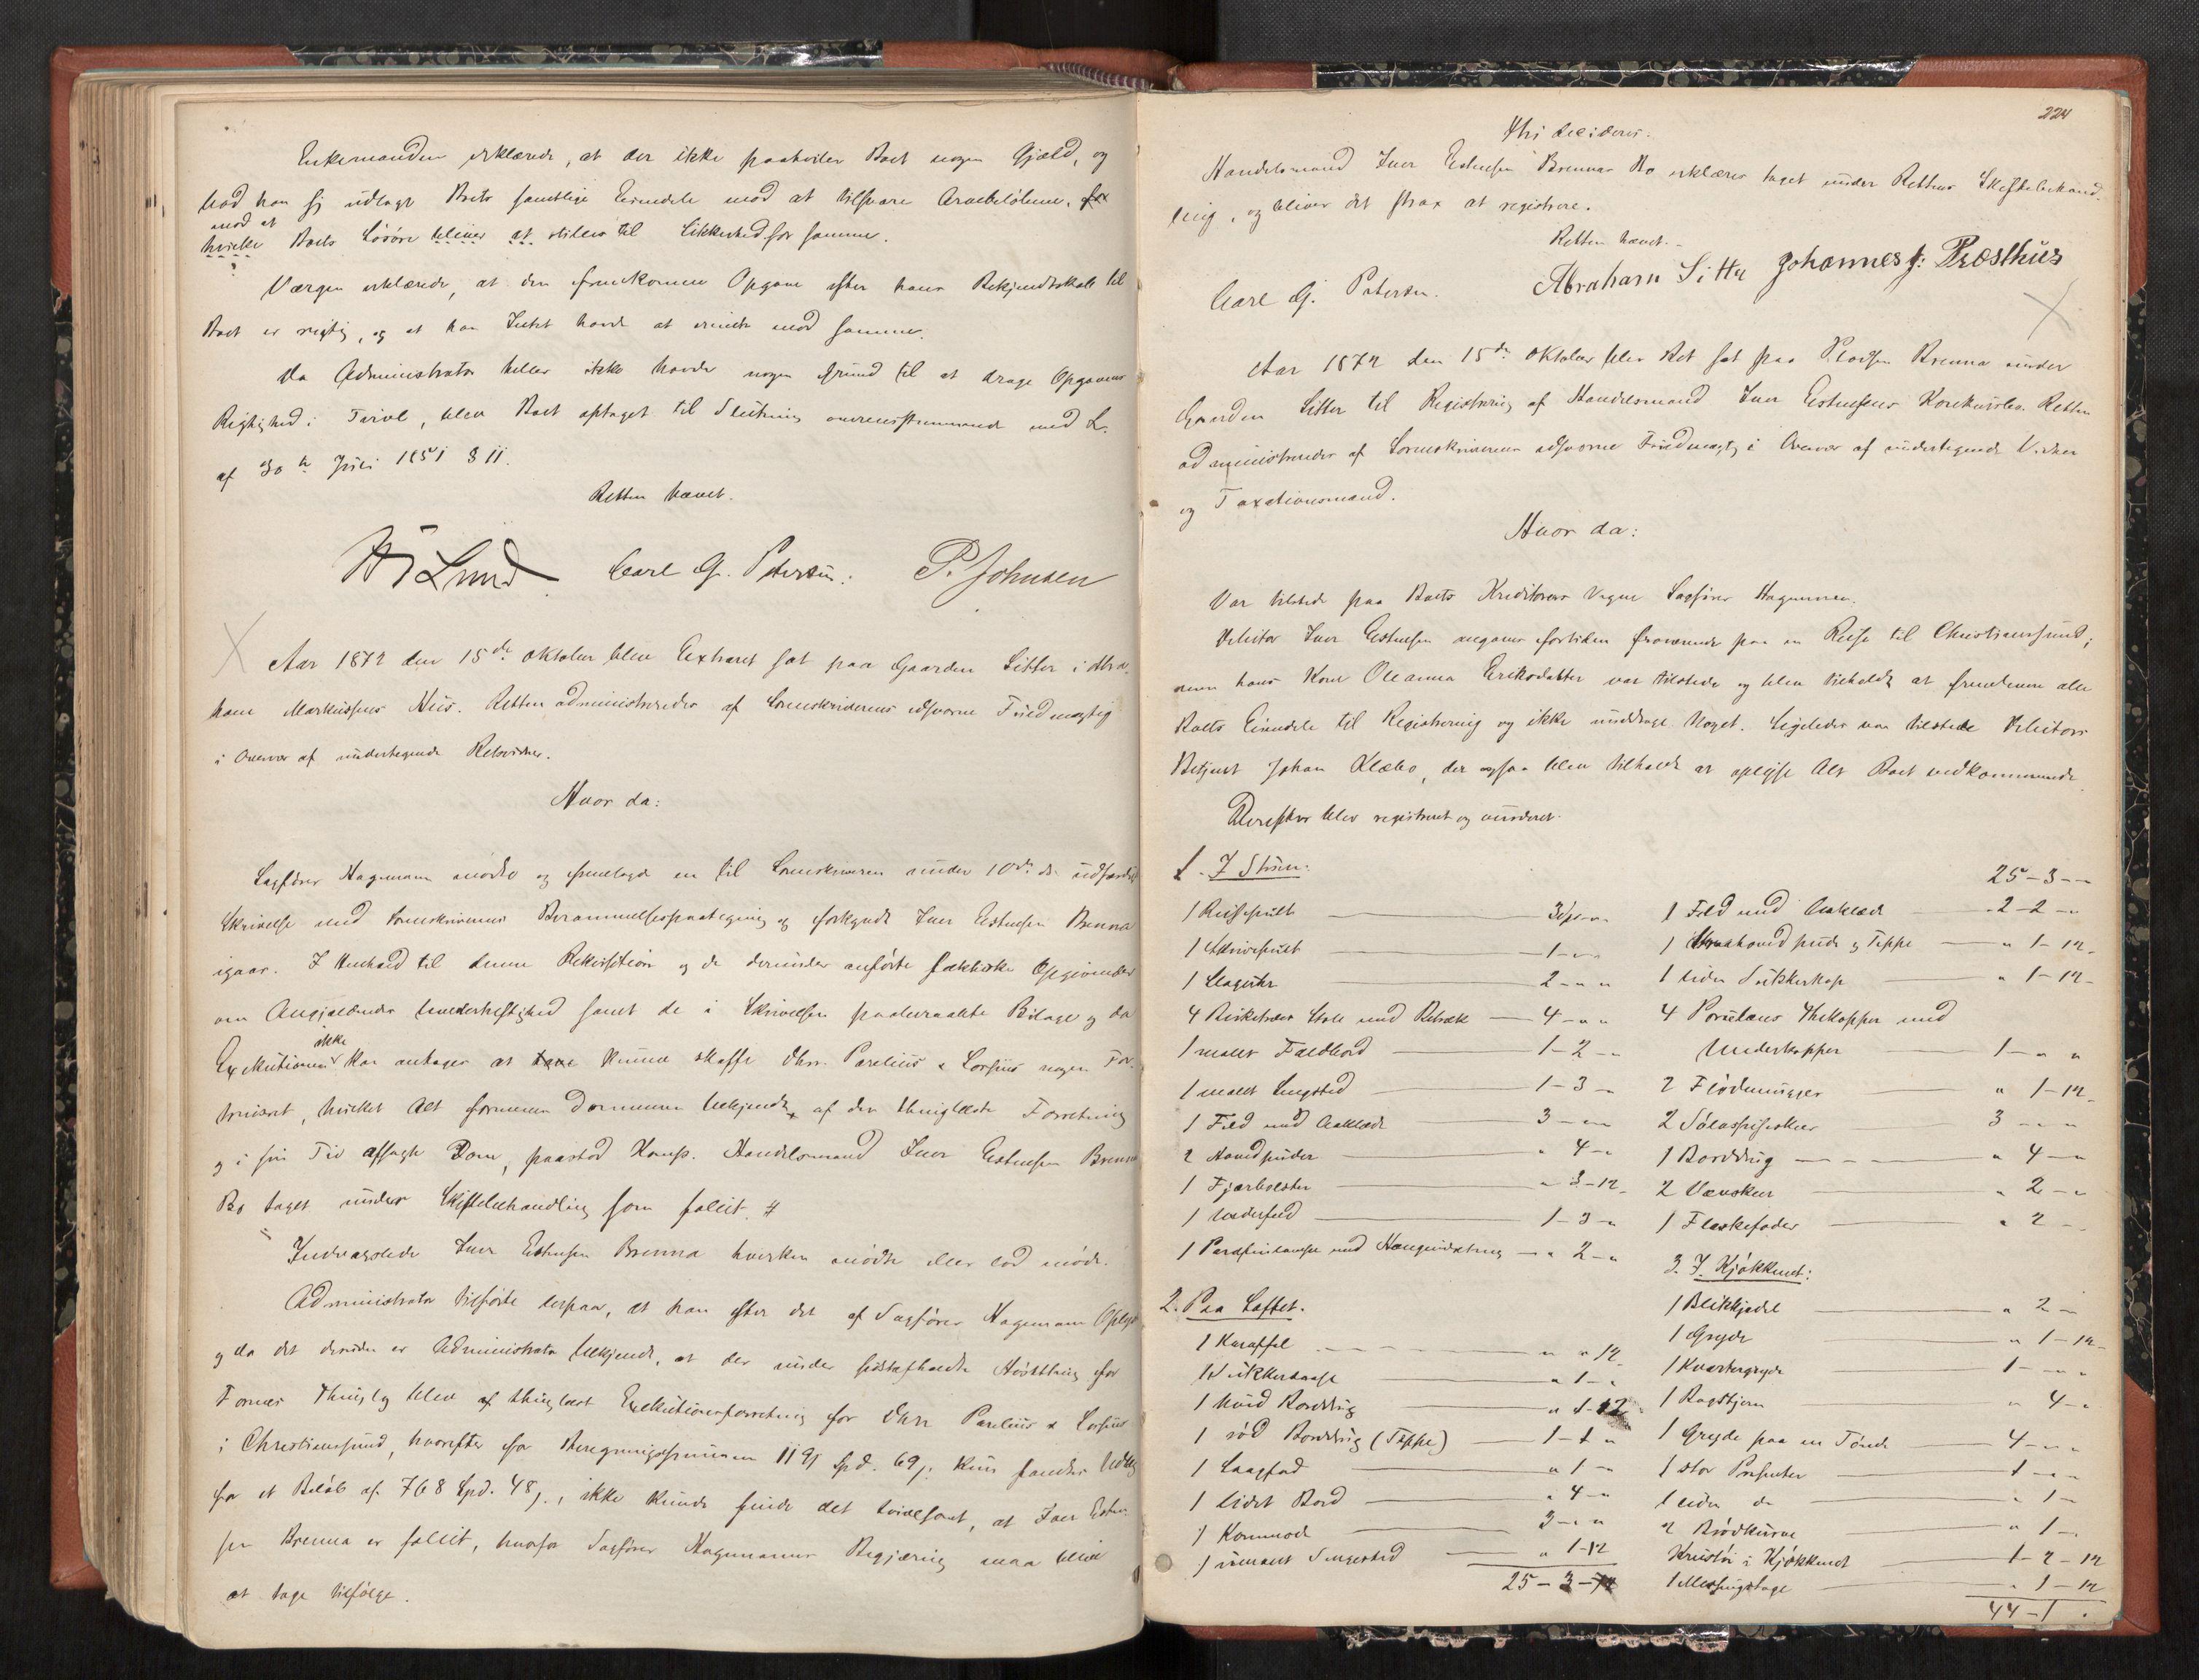 Enkemanden erklærede, at der ikke paahviler Boet nogen Gjæld, og
bad han sig udlagt Boets samtlige Eiendele mod at tilsvare Arvebeløbene,
mod at
hvilke Boets Løsøre bliver at stilles til Sikkerhed for samme.
Værgen erklærede, at den fremkomne Opgave efter hans Bekjendtskab til
Boet er rigtig, og at han Intet havde at erindre mod samme.
Da Administrator heller ikke havde nogen Grund til at drage Opgavens
Rigtighed i Tvivl, blev Boet optaget til Slutning overensstemmende med L.
af 30te Juli 1851 § 11.
Retten hævet.
Lund Carl G. Petersen. P. Johnsen
Aar 1872 den 15de Oktober blev Extraret sat paa Gaarden Sitter i Abra-
ham Markussens Hus. Retten administreredes af Sorenskriverens edsvorne Fuldmægtig
i Overvær af undertegnede Retsvidner.
Hvor da:
Sagfører Hagemann mødte og fremlagde en til Sorenskriveren under 10de ds. udfærdiget
Skrivelse med Sorenskriverens Berammelsespaategning og forkyndt Iver Estensen Brenna
igaar. I Henhold til denne Rekvisition og de derunder anførte faktiske Opgivender
om Angjældendes samt de i Skrivelsen paaberaabte Bilage og da
ikke
Exekutionen kan antages at kunne skaffe Dhrr. Parelius & Lossius nogen For-
trinsret, hvilket Alt formenes Dommeren bekjendt af den thinglæste Forretning
og i sin Tid afsagte Dom, paastod Komp. Handelsmand Iver Estensen Brenna
Bo taget under Skiftebehandling som fallit. #
Indvarslede Iver Estensen Brenna hverken mødte eller lod møde.
Administrator tilførte derpaa, at han efter det af Sagfører Hagemann Oplyste
og da det desuden er Administrator bekjendt, at der under sidstafholdte Høstthing for
Fornæs Thinglag blev af thinglæst Exekutionsforretning for Dhrr Parelius & Lossius
i Christiansund, hvorefter for Beregningssummen 1191 Spd. 69 s. kun fandtes Udlæg
for et Beløb af 768 Spd. 48 s., ikke kunde finde det tvivlsomt, at Iver Esten-
sen Brenna er fallit, hvorfor Sagfører Hagemanns Begjæring maa blive
at tage tilfølge.
224
Thi decideres:
Handelsmand Iver Estensen Brennas Bo erklæres taget under Rettens Skiftebehand-
ling, og bliver det strax at registrere.
Retten hævet.
Carl G. Petersen. Abraham Sitter Johannes J. Præsthus
Aar 1872 den 15de Oktober blev Ret sat paa Pladsen Brenna under
Gaarden Sitter til Registrering af Handelsmand Iver Estensens Konkursbo. Retten
administreredes af Sorenskriverens edsvorne Fuldmægtig i Overvær af undertegnede Vidner
og Taxationsmænd.
Hvor da:
Var tilstede paa Boets Kreditorers Vegne Sagfører Hagemann.
Debitor Iver Estensen angaves fortiden fraværende paa en Reise til Christianssund;
men hans Kone Oleanna Eriksdatter var tilstede og blev tilholdt at fremlevere alle
Boets Eiendele til Registrering og ikke unddrage Noget. Ligeledes var tilstede Debitors
Betjent Johan Klæbo, der ogsaa blev tilholdt at oplyse Alt Boet vedkommende.
Derefter blev registreret og vurderet:
1. I Stuen:
1 Reisepult 3 Sp " "
1 Skrivepult 1 - " "
1 Slaguhr 2 - " "
4 Birketræs Stole med Betræk 4 - " "
1 malet Foldbord 1 - 2 - "
1 malet Sengsted 1 - 3 - "
1 Feld med Aaklæde 3 - " "
2 Hovedpuder " 4 - "
1 Fjærbolster " 3 - 12
1 Underfeld 1 - 3 - "
1 Parafinlampe med Hængeindretning " 2 - "
2. Paa Loftet.
1 Karaffel " " 12
1 Sukkerkasse " 1 - "
1 hvid Borddug " 1 - 12
1 rød Borddug (Teppe) 1 - 1 "
1 Laagfad " 1 - "
1 lidet Bord " 4 - "
1 Kommode 3 - " "
1 umalet Sengested " 1 - 12
25 - 3 -
25 - 3 -
1 Feld med Aaklæde 2 - 2 - "
1 Hovedpude og Teppe " 1 - 12
1 liden Sukkerkop " 1 - 12
4 Porcelæns Thekopper med
Underkopper 1 - " "
2 Flødemugger " 1 - 12
2 Sølvspiseskeer 3 - " "
1 Borddug " 4 - "
2 Vævskeer " 2 - "
1 Flaskefoder " 2 -
3. I Kjøkkenet:
1 Blikkjedel " 2 -
1 Gryde " 1 - 12
1 Kvartergryde 1 - " "
1 Bagstjern " 4 - "
1 Gryde paa en Tønde 4 - " "
1 stor 1 - " "
1 liden do " 1 -
2 Brødkurve " 1 -
Krustøi i Kjøkkenet 1 - 2 - 12
1 Messingstage " 1 - 12
44 - 1 "